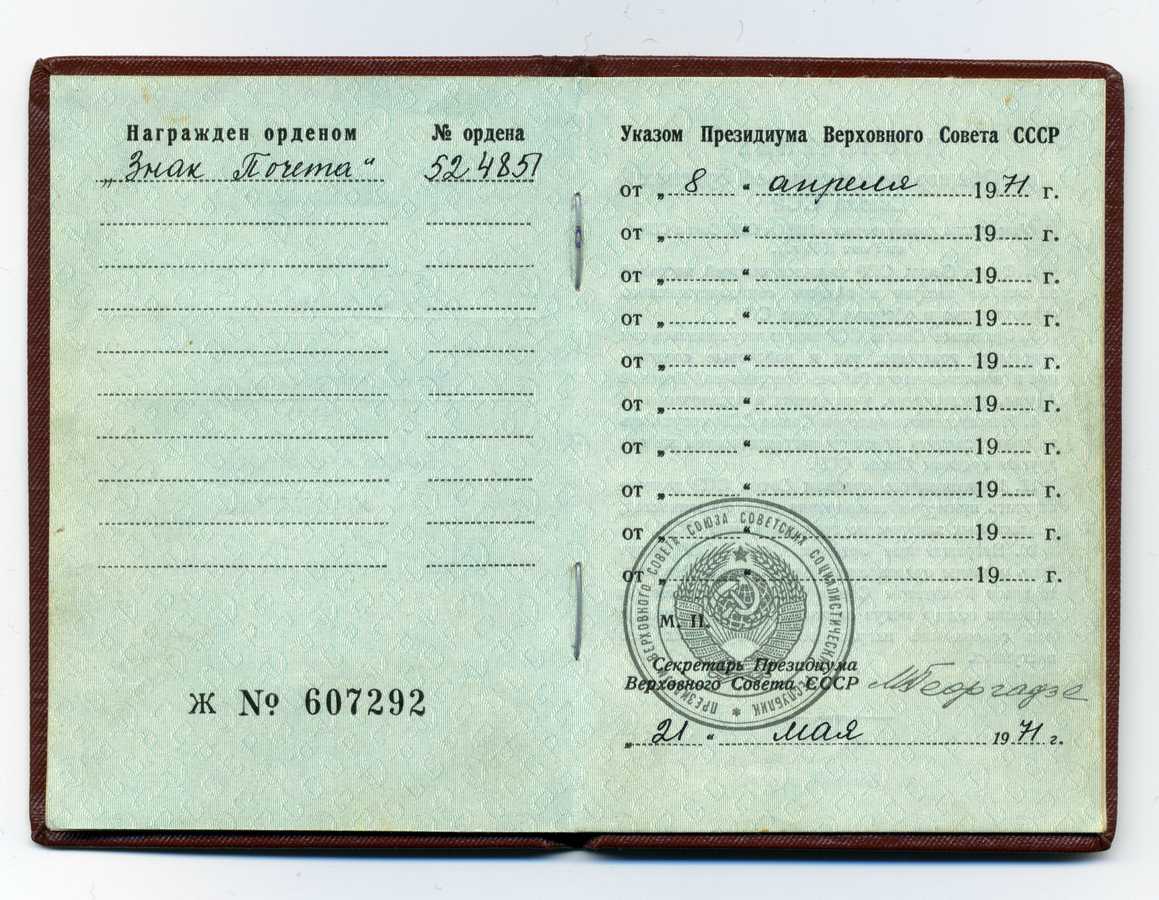 Награжден орденом № ордена
„Знак Почета“ 524851
Ж № 607292
Указом Президиума Верховного Совета СССР
от „ 8 “ апреля 1971 г.
от „ “ 19 г.
от „ “ 19 г.
от „ “ 19 г.
от „ “ 19 г.
от „ “ 19 г.
от „ “ 19 г.
от „ “ 19 г.
от „ “ 19 г.
от „ “ 19 г.
ПРЕЗИДИУМ ВЕРХОВНОГО СОВЕТА СОЮЗА СОВЕТСКИХ СОЦИАЛИСТИЧЕСКИХ РЕСПУБЛИК
М. П.
Секретарь Президиума
Верховного Совета СССР МГеоргадзе
„ 21 “ мая 1971 г.